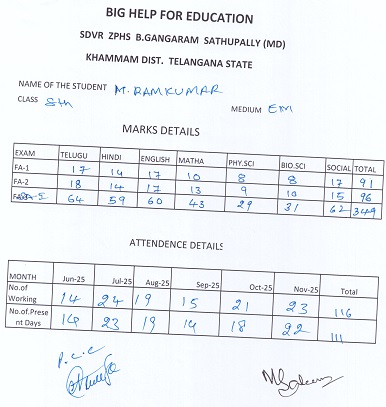 BIG HELP FOR EDUCATION
SDVR ZPHS B.GANGARAM SATHUPALLY (MD)
KHAMMAM DIST. TELANGANA STATE
NAME OF THE STUDENT M. RAMKUMAR
CLASS 8th MEDIUM E/M
MARKS DETAILS
EXAM TELUGU HINDI ENGLISH MATHA PHY.SCI BIO.SCI SOCIAL TOTAL
FA-1 17 14 17 10 8 8 17 91
FA-2 18 14 17 13 9 10 15 96
64 59 60 43 29 31 62 349
ATTENDENCE DETAILS
MONTH Jun-25 Jul-25 Aug-25 Sep-25 Oct-25 Nov-25 Total
No.of Working 14 24 19 15 21 23 116
No.of.Prese nt Days 14 23 19 14 18 22 111